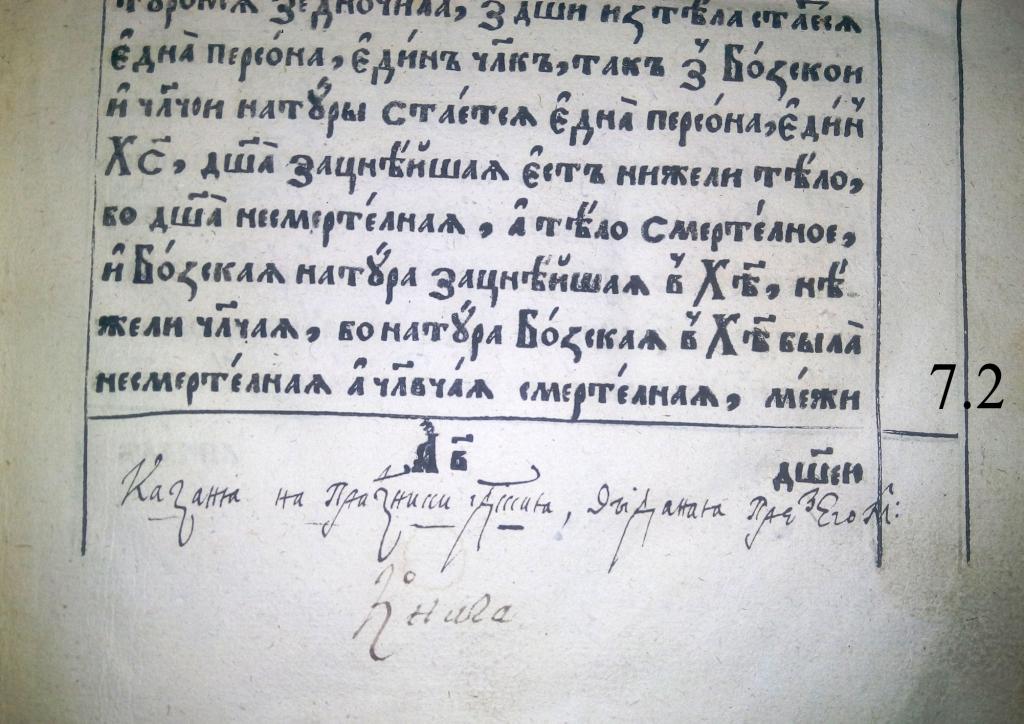 з дш҃и и з тѣла стае́сѧ
є҆дна̀ персо́на, є҆ди́нъ чл҃къ, такъ з̾ Бо́зскои
и҆ чл҃чои нату́ры стае́тсѧ є҆дна̀ персо́на, є҆ди́й
Хс҃, дш҃а̀ зацнѣ́йшаѧ є҆стъ нижели тѣ́ло,
бо дш҃а̀ несмерте́лнаѧ, а҆ тѣ́ло смерте́лное,
и҆ Бо́зскаѧ нату́ра зацнѣ́йшаѧ в̾ Хѣ҃, нѣ́
жели чл҃чаѧ, бо нату́ра Бо́зскаѧ в̾ Хѣ҃ была̀
несмерте́лнаѧ а҆ чл҃вча́ѧ смерте́лнаѧ, ме́жи
7.2
А в҃
дш҃ею
Казаня на
Книга